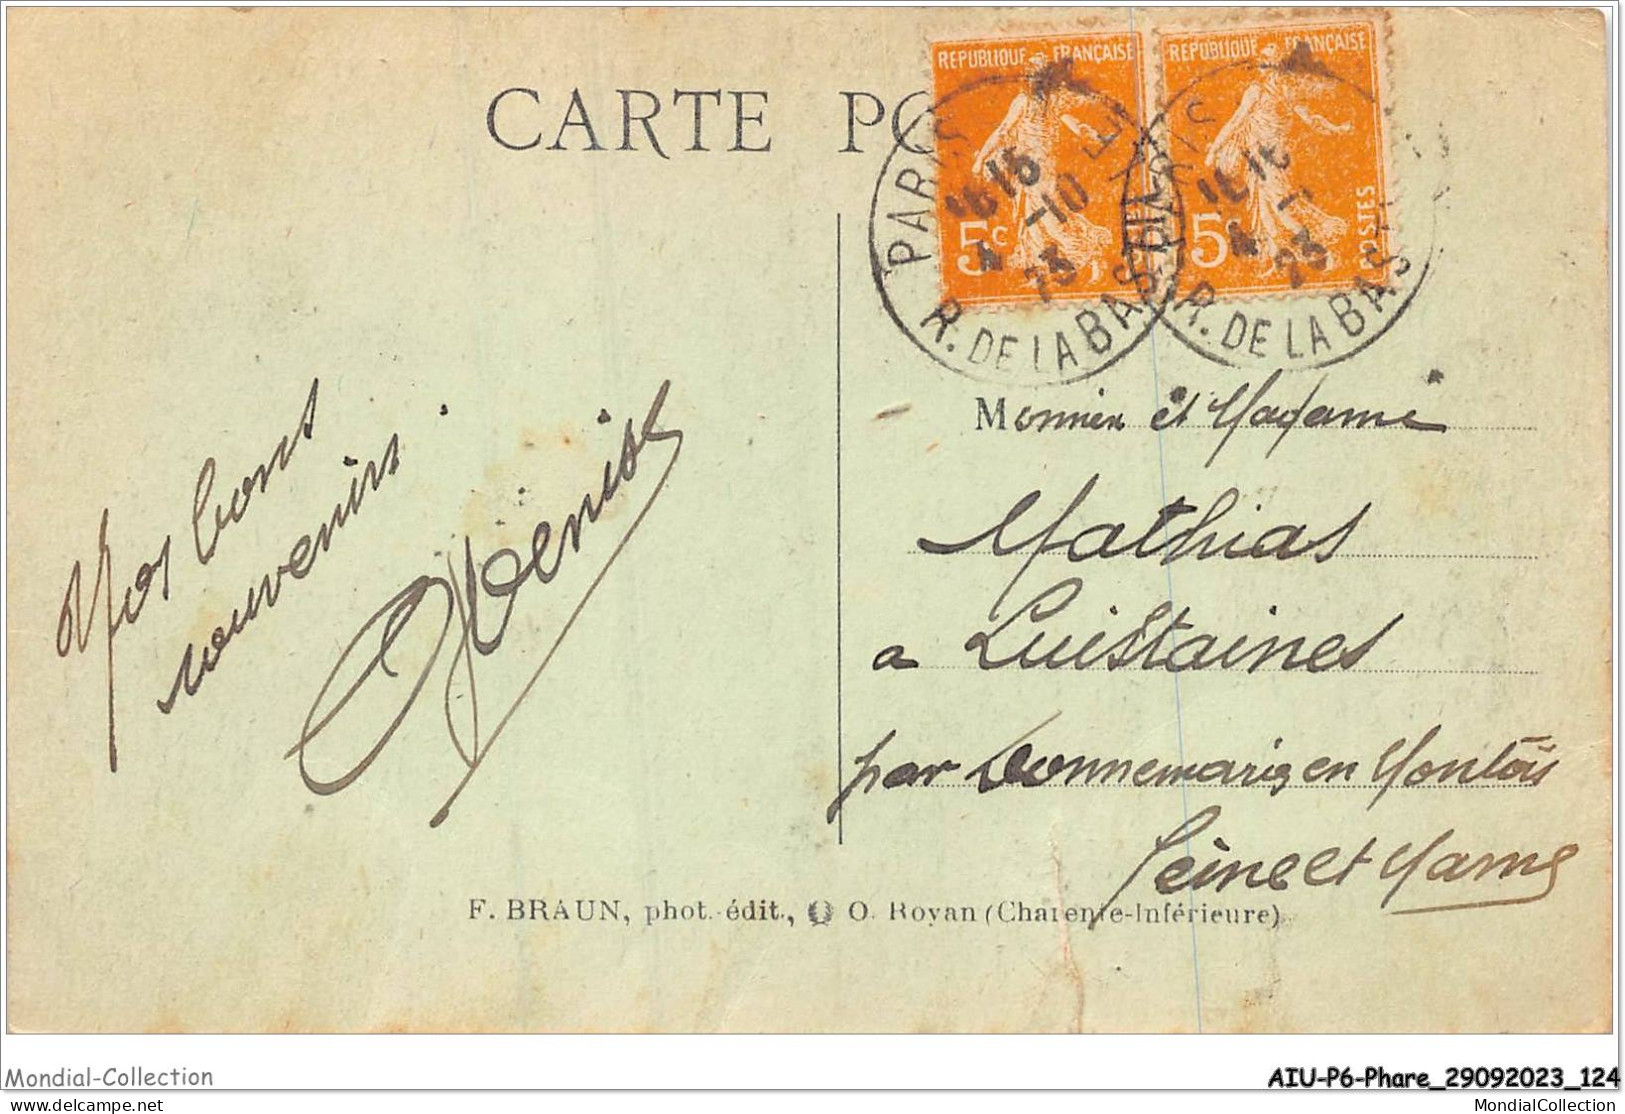 CARTE PO
REPUBLIQUE FRANÇAISE
5c
REPUBLIQUE FRANÇAISE
5c
POSTES
PARIS
16 15
4 -10
23
R. DE LA BASTILLE
PARIS
4
23
R. DE LA BAS
Mos bons
souvenirs.
Denise
Monsieur et Madame
Mathias
a Luistaines
par Donnemarie en Montois
Seine et Marne
F. BRAUN, phot.-édit., O. Royan (Charente-Inférieure)
Mondial-Collection
AIU-P6-Phare_29092023_124
www.delcampe.net
MondialCollection